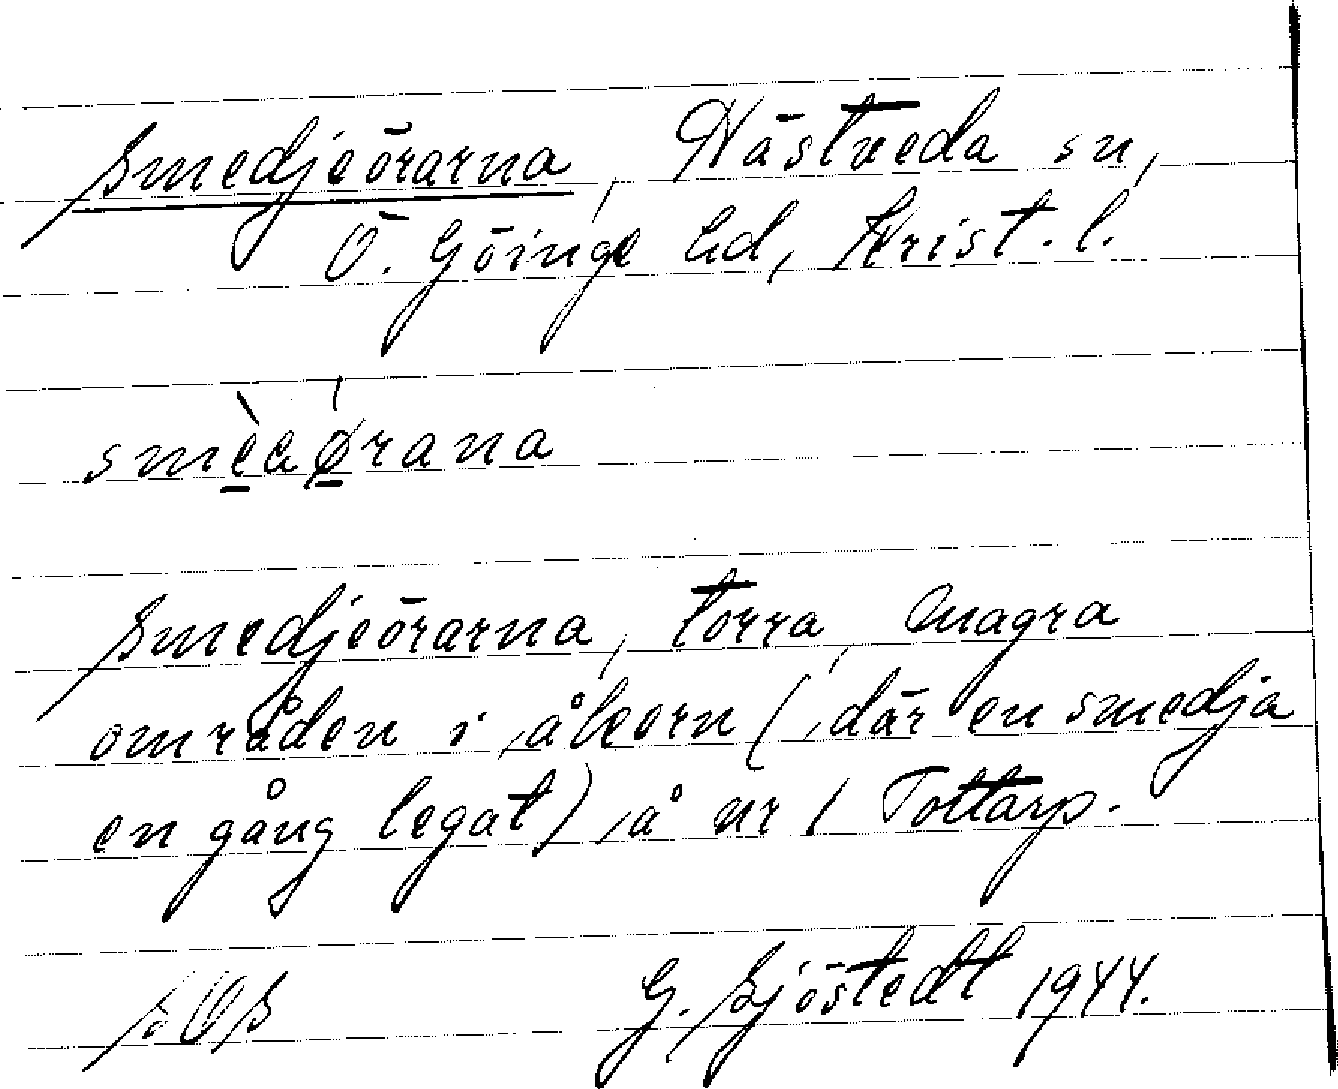 Smedjeörarna, Hästveda sn,
Ö. Göinge hd, Krist. l.
smèaǿrana
Smedjeörarna, torra, magra
områden i åkern (, där en smedja
en gång legat), å nr 1 Tottarp.
SOS G. Sjöstedt 1944.